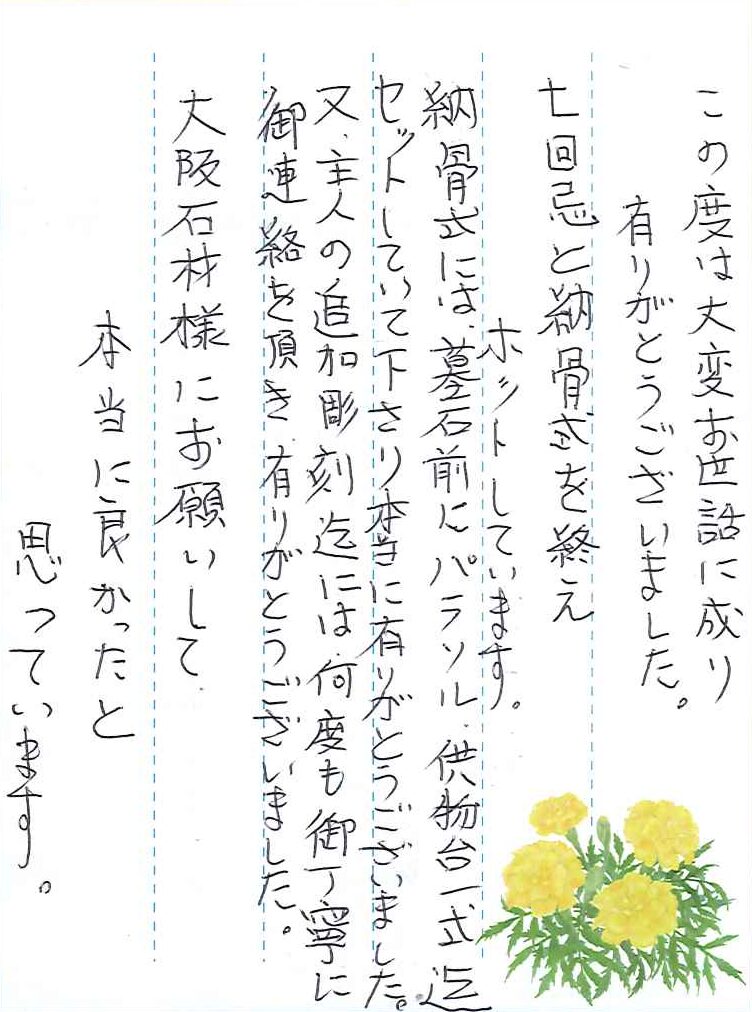 この度は大変お世話に成り
有りがとうございました。
七回忌と納骨式を終え
ホットしています。
納骨式には、墓石前にパラソル、供物台一式迄
セットしていて下さり本当に有りがとうございました。
又、主人の追加彫刻迄には何度も御丁寧に
御連絡を頂き有りがとうございました。
大阪石材様にお願いして
本当に良かったと
思っています。